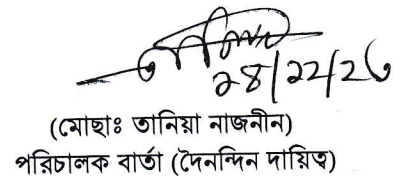 ২৪/১১/২৫
(মোছাঃ তানিয়া নাজনীন)
পরিচালক বার্তা (দৈনন্দিন দায়িত্ব)